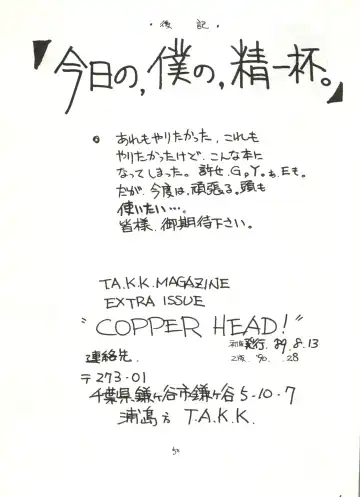 ・後 記・
『今日の,僕の,精一杯。』
。あれもやりたかった,これも
やりたかったけど,こんな本に
なってしまった。許せ.G,Y。も.Eも。
だが,今度は,頑張る。頭も
使いたい…。
皆様,御期待下さい。
T.A.K.K.MAGAZINE
EXTRA ISSUE
"COPPER HEAD!"
初版発行.'89.8.13
2版.'90. .28
連絡先.
〒273-01
千葉県鎌ヶ谷市鎌ヶ谷5-10-7
浦島方 T.A.K.K.